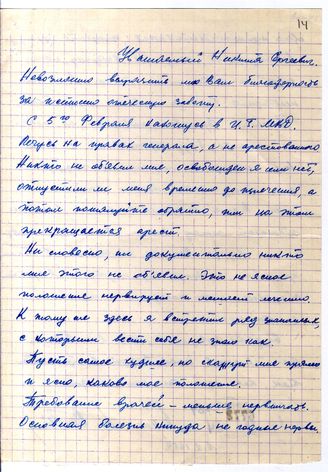 14
Уважаемый Никита Сергеевич.
Невозможно выразить мою Вам благодарность
за истинно отеческую заботу.
С 5го февраля нахожусь в Ц.Г. МВД.
Лечусь на правах генерала, а не арестованного
Никто не объявил мне, освобожден я или нет,
отпустили ли меня временно до излечения, а
потом пожалуйте обратно, или на этом
прекращается арест.
Ни словесно, ни документально никто
мне этого не объявил. Это не ясное
положение нервирует и мешает лечению.
К тому же здесь я встретил ряд знакомых,
с которыми вести себя не знаю как.
Пусть самое худшее, но скажут мне прямо
и ясно, каково мое положение.
Требование врачей – меньше нервничать.
Основная болезнь никуда не годные нервы.